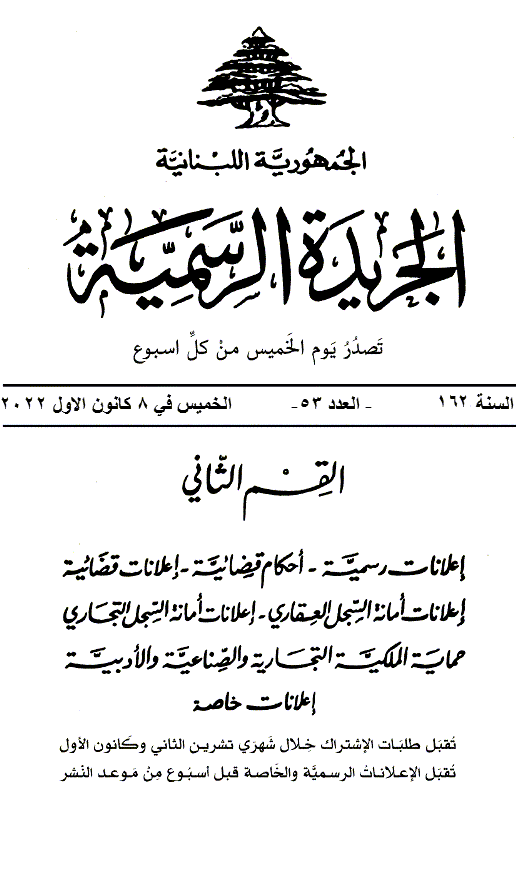 الجمهوريَّة اللبنانيَّة
الجريدة الرسميَّة
تَصدُرُ يَوم الخَميس منْ كلِّ اسبوع
السنة ١٦٢ - العدد ٥٣- الخميس في ٨ كانون الاول ٢٠٢٢
القِسْم الثّاني
إعلانات رسميَّة - أحكام قضائيَّة - إعلانات قضائية
إعلانات أمانة السِّجل العقاري - إعلانات أمانة السِّجل التجاري
حماية الملكيَّة التجارية والصِّناعيَّة والأدبيَّة
إعلانات خاصة
تُقبَل طلبَات الإشتراك خِلال شَهرَي تشرين الثاني وكَانون الأول
تُقبَل الإعلاناتُ الرسميَّة والخَاصة قبل أسبُوع مِنْ مَوعد النَشر